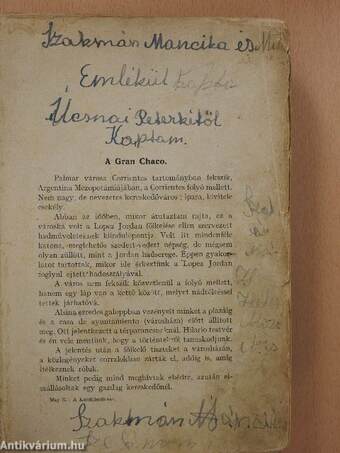 Szakmán Mancika és
Emlékül
Ucsnai Péterkétől
Kaptam.
A Gran Chaco.
Palmar városa Corrientes tartományban fekszik,
Argentina Mezopotámiájában, a Corrientes folyó mellett.
Nem nagy, de nevezetes kereskedőváros; ipara, kivitele
csekély.
Abban az időben, mikor átutaztam rajta, ez a
városka volt a Lopez Jordan fölkelése ellen szervezett
hadműveletések kiindulópontja. Volt itt mindenféle
katona, meglehetős szedett-vedett népség, de mégsem
olyan züllött, mint a Jordan hadserege. Éppen gyakor-
latot tartottak, mikor ide érkeztünk a Lopez Jordan
foglyul ejtett hadosztályával.
A város nem fekszik közvetlenül a folyó mellett,
hanem egy láp van a kettő között, melyet nádtöltéssel
tettek járhatóvá.
Alsina ezredes galoppban vezényelt minket a plazáig
és a casa de ayuntamiento (városháza) előtt állított
meg. Ott jelentkezett a térparancsnoknál. Hilario testvér
és én vele mentünk, hogy a történtekről tanuskodjunk.
A jelentés után a fölkelő tiszteket a városházán,
a közlegényeket corralokban zárták el, addig is, amíg
ítélkeznek róluk.
Minket pedig mind meghívtak ebédre, azután el-
szállásoltak egy gazdag kereskedőnél.
May K.: A
Szakmán
antikvárium.hu
Antikvárium.hu